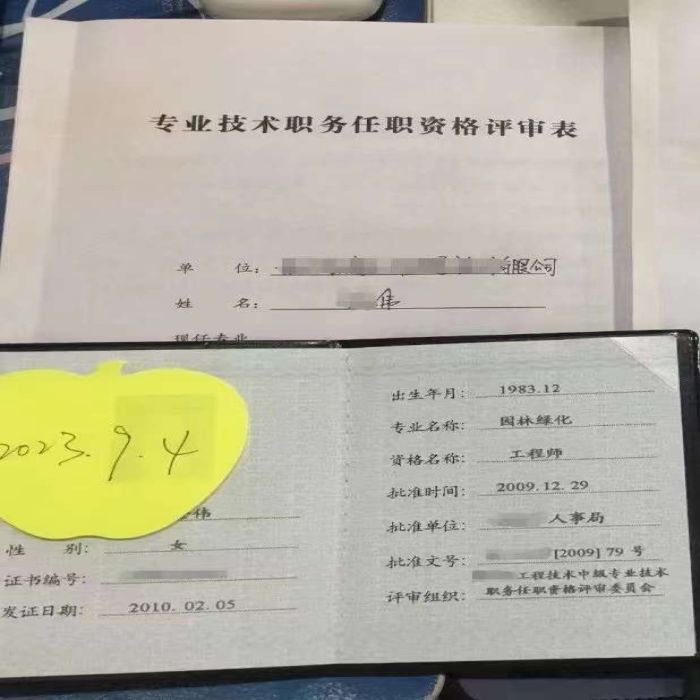 专业技术职务任职资格评审表
单 位： 有限公司
姓 名： 伟
现任专业
2023.9.4
伟
性 别： 女
证书编号：
发证日期： 2010.02.05
出生年月： 1983.12
专业名称： 园林绿化
资格名称： 工程师
批准时间： 2009.12.29
批准单位： 人事局
批准文号： [2009] 79 号
评审组织： 工程技术中级专业技术
职务任职资格评审委员会